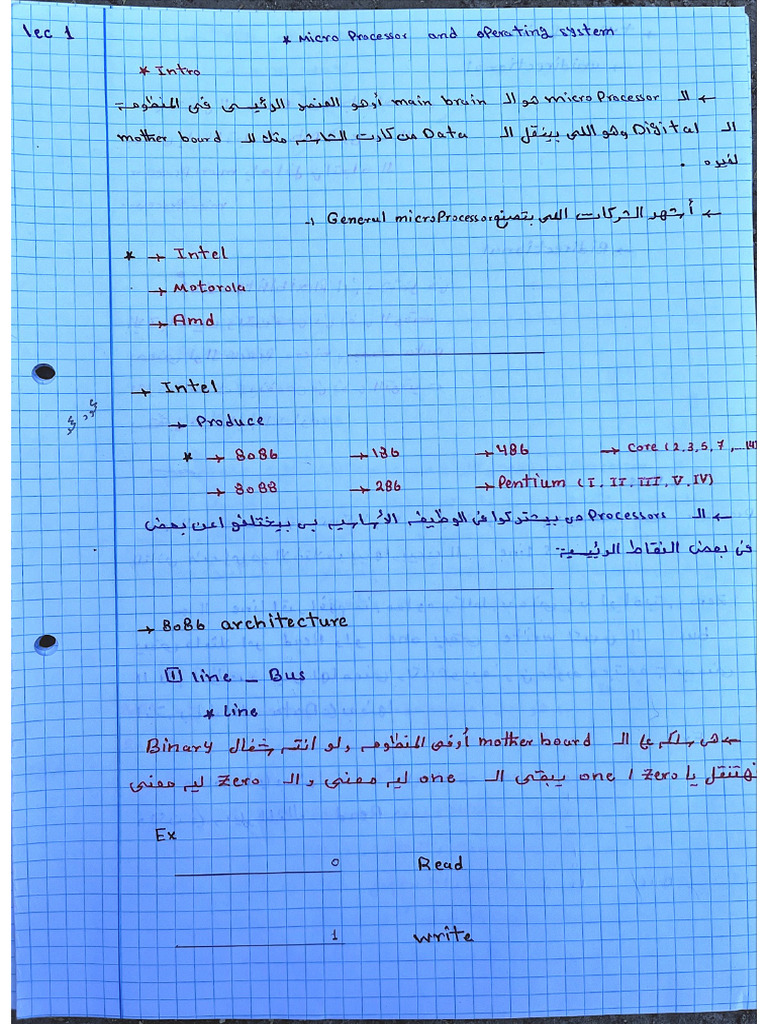 lec 1
* Micro Processor and operating system
* Intro
← الـ microProcessor هو الـ main brain أو هو العنصر الرئيسى فى المنظومة
الـ Digital وهو اللى بينقل الـ Data من كارت الشاشه مثلا لـ mother board
لغيره .
← أشهر الشركات اللى بتصنع General microProcessor :-
* → Intel
→ Motorola
→ Amd
→ Intel
→ Produce
* → 8086 → 186 → 486 → Core (2,3,5,7,...i4)
→ 8088 → 286 → Pentium (I, II, III, V, IV)
← الـ Processors دى بيشتركوا فى الوظيفه الأساسيه بس بيختلفوا عن بعض
فى بعض النقاط الرئيسية
→ 8086 architecture
1 line _ Bus
* Line
← هى سلكه على الـ mother board أو فى المنظومه ولو انت شغال Binary
هتنقل يا one / zero يبقى الـ one ليه معنى والـ zero ليه معنى
Ex
0 Read
1 write